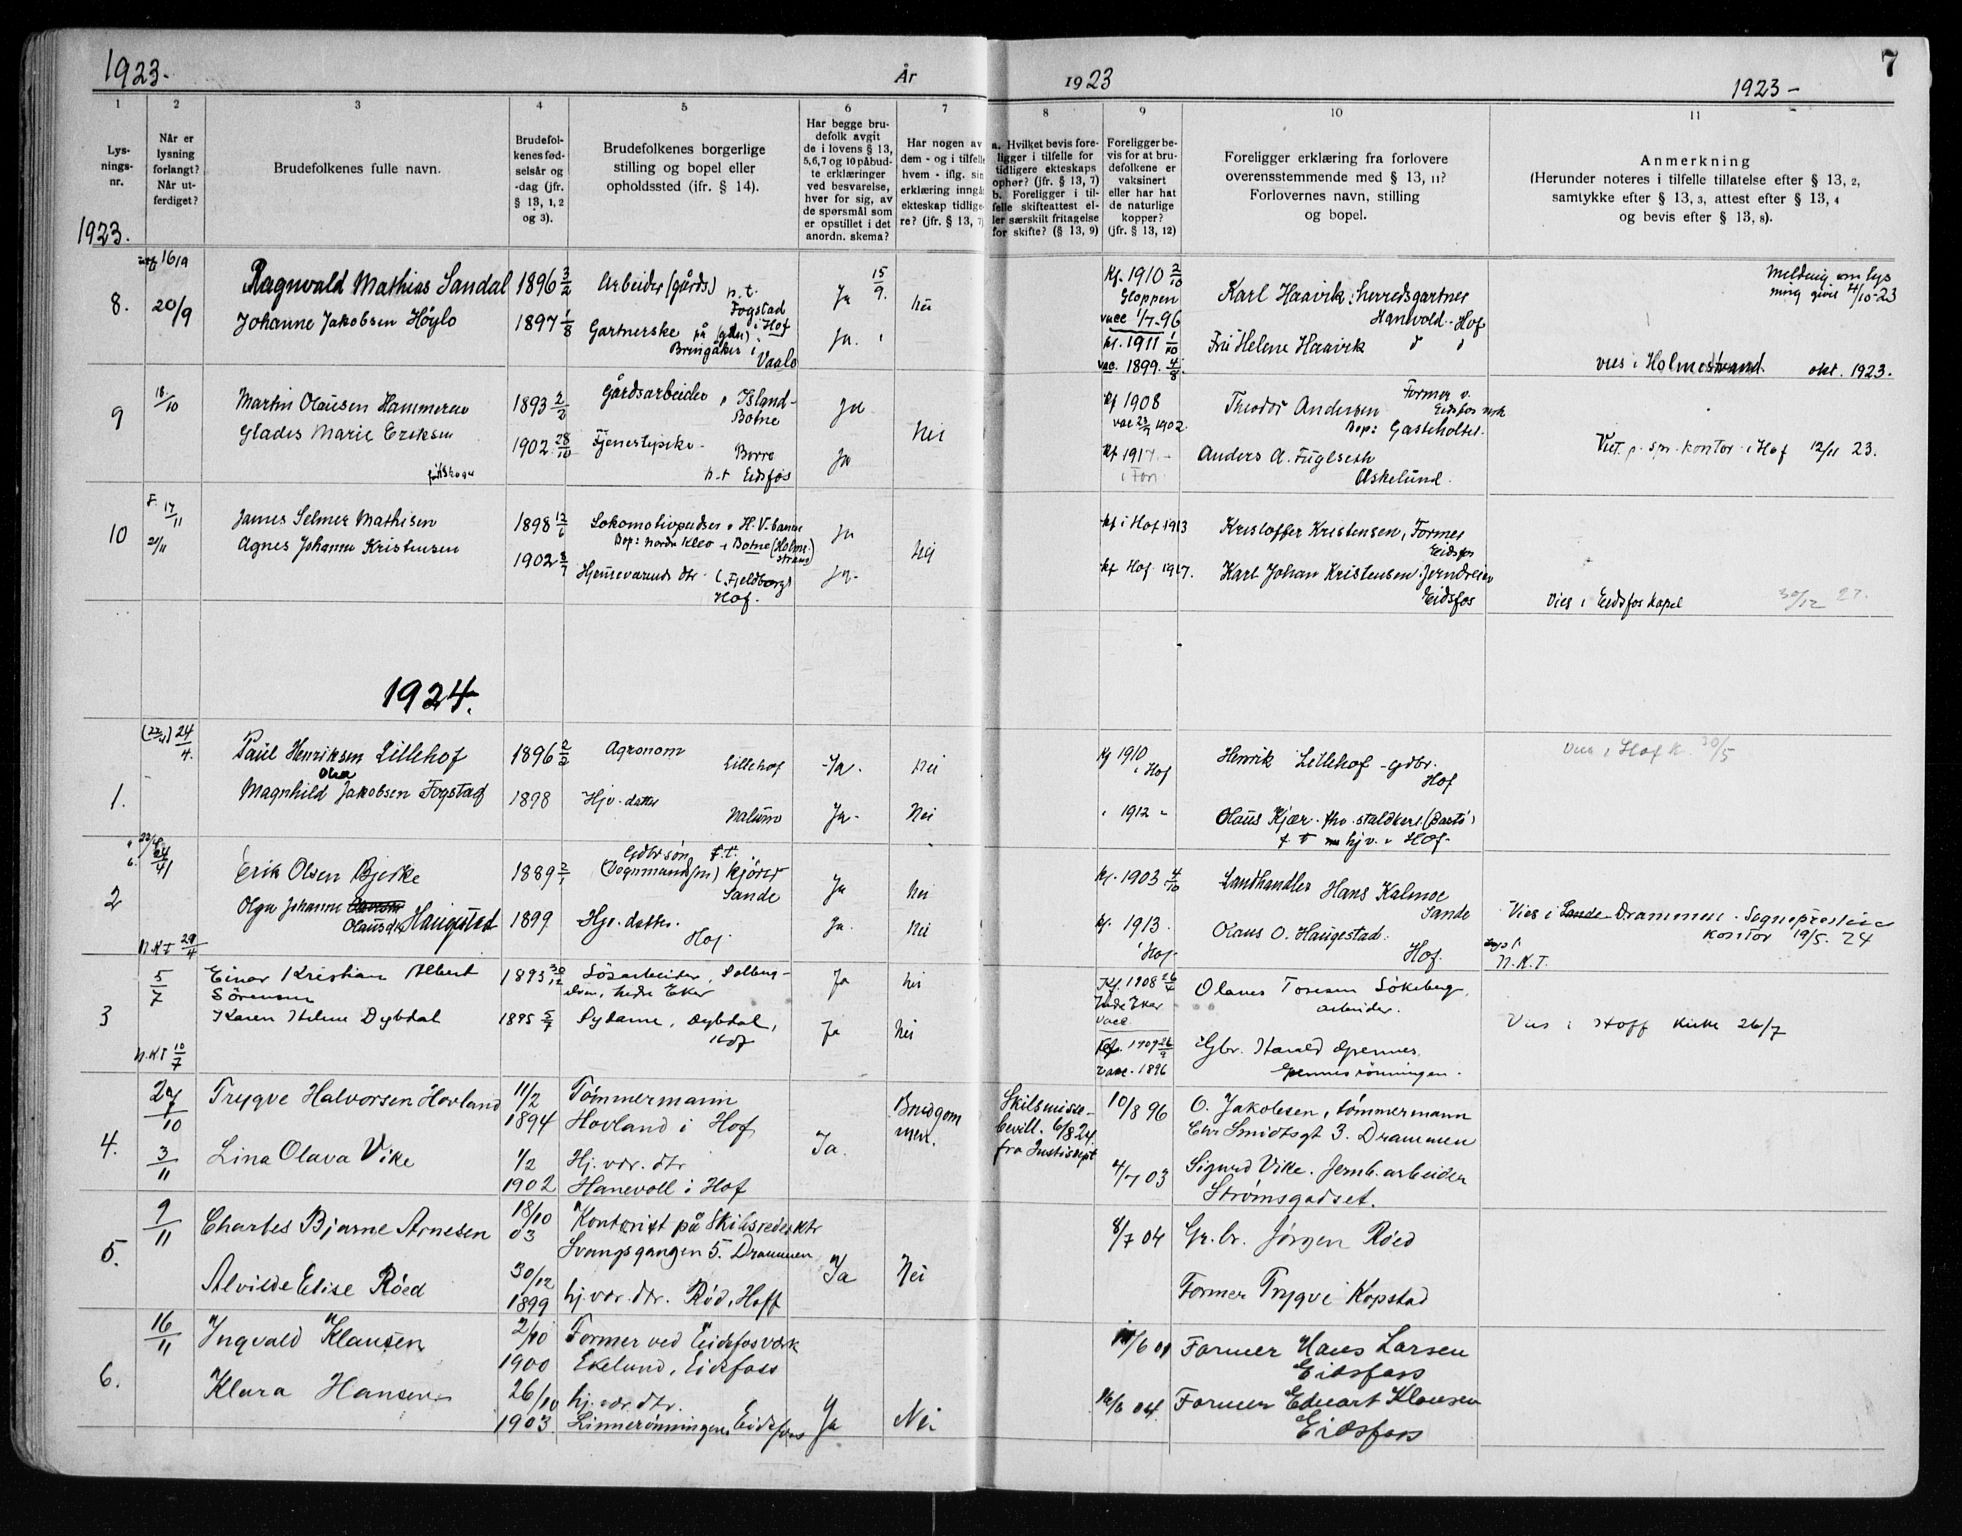 1923.
År
1923
1923 –
7
1
2
3
4
5
6
7
8
9
10
11
Lys-
nings-
nr.
Når er
lysning
forlangt?
Når ut-
ferdiget?
Brudefolkenes fulle navn.
Brudefol-
kenes fød-
selsår og
-dag (jfr.
§ 13, 1, 2
og 3).
Brudefolkenes borgerlige
stilling og bopel eller
opholdssted (jfr. § 14).
Har begge bru-
defolk avgit
de i lovens § 13,
5,6,7 og 10 påbud-
te erklæringer
ved besvarelse,
hver for sig, av
de spørsmål som
er opstillet i det
anordn. skema?
Har nogen av
dem - og i tilfelle
hvem - iflg. sin
erklæring inngåt
ekteskap tidlige-
re? (jfr. § 13, 7)
a. Hvilket bevis fore-
ligger i tilfelle for
tidligere ekteskaps
ophør? (jfr. § 13, 7)
b. Foreligger i til-
felle skifteattest el-
ler særskilt fritagelse
for skifte? (§ 13, 9)
Foreligger be-
vis for at bru-
defolkene er
vaksinert
eller har hat
de naturlige
kopper?
(jfr. § 13, 12)
Foreligger erklæring fra forlovere
overensstemmende med § 13, 11?
Forlovernes navn, stilling
og bopel.
Anmerkning
(Herunder noteres i tilfelle tillatelse efter § 13, 2,
samtykke efter § 13, 3, attest efter § 13, 4
og bevis efter § 13, 8).
1923.
8.
16/9
20/9
Ragnvald Mathias Sandal
Johanne Jakobsen Höylo
1896 3/2
1897 1/8
Arbeider (gårds.) n.t.
Fogstad
i Hof
Gartnerske på
Bringåker i
Vaale
Ja
15/9.
Ja.
Nei
Kf. 1910 2/10
Gloppen
vacc 1/7-96
kf. 1911 1/10
vac. 1899. 4/8.
Karl Haavik, herredsgartner
Hanevold - Hof
Fru Helene Haavik
Melding om lys
ning givet 4/10-23
vies i Holmestrand. okt. 1923.
9
18/10
Martin Olausen Hammeren
Glades Marie Eriksen
1893 2/2
1902 28/10
Gårdsarbeider, Island -
Botne
Tjenestepike -
Borre
n.t Eidsfos
Ja
Ja
Nei
kf 1908
1902.
kf 1917 -
Theodor Andersen Former v.
Eidsfos verk
Bop: Gasteholtet.
Anders A. Fuglseth
Askelund.
Viet p. spr. kontor i Hof 12/11 23.
10
F. 17/11
21/11
James Selmer Mathisen
Agnes Johanne Kristensen
1898 12/6
1902 8/7
Lokomotivpudser v H.V. banen
Bop: nordre Klev i Botne (Holme-
strand)
Hjemeværende dtr. (Fjeldborg)
Hof.
Ja
Ja.
Nei
kf i Hof 1913
kf Hof 1917.
Kristoffer Kristensen, Former
Eidsfos
Karl Johan Kristensen. Jerndreier
Eidsfos
Vies i Eidsfos Kapel 30/12 27.
1924.
1.
(22/4) 24/4.
Paul Henriksen Lillehof
Olea
Magnhild Jakobsen Fogstad
1896 2/2
1898
Agronom
Lillehof
Hjv. datter
Nalum
Ja.
Ja.
Nei
Nei
kf 1910
i Hof
" 1912 "
Henrik Lillehof - gdbr.
Hof
Olaus Kjær - fhv. staldkarl
f. t hjv. i Hof.
Vies i Hof k. 30/5
2
24/4
N.K.T 29/4
Erik Olsen Bjerke
Olga Johanne
Olausdtr Haugestad
1889 2/1
1899.
Gdbr sön f.t.
(Vognmand) kjörer
Sande
Hjv. datter.
Hof.
Ja
Ja.
Nei
Nei
kf. 1903 4/10
kf. 1913.
i Hof.
Landhandler Hans Kalmoe
Sande
Olaus O. Haugestad.
Hof.
Vies i Sande Drammen. Sogneprestens
Kontor 19/5. 24
N.K.T.
3
5/7
N.K.T 10/7
Einar Kristian Albert
Sörensen
Karen Helene Dybdal
1893 30/12
1895 5/7
Lösarbeider, Solberg-
elven, nedre Eker
Sydame, Dybdal,
Hof
Ja
Ja
Nei
Nei
Kf. 1908 26/4
Nedre Eker
vacc
Kf. 1909 26/9
vacc. 1896
Olaves Toresen Sökeberg,
arbeider.
Gbr. Harald Grennes
Grennesrönningen.
Vies i Hoff kirke 26/7
4.
27/10
3/11
Trygve Halvorsen Hovland
Lina Olava Vike
11/2
1894
1/2
1902
Tømmermann
Hovland i Hof
Hj. vær. dtr
Hanevoll i Hof
Ja.
Brudgom
men.
Skilsmisse-
bevill. 6/8 24.
fra Justisdept
10/8 96
4/7 03
O. Jakobsen, tømmermann
Chr Smidtsgt 3. Drammen
Sigurd Vike. Jernb. arbeider
Strømsgodset.
5.
9/11
Charles Bjarne Arnesen
Alvilde Elise Röed
18/10
03
30/12
1899
Kontorist på Skibsredekt
Svangsgangen 5. Drammen
hj. vær. dtr. Röd, Hoff
Ja
Nei
8/7 04
Gr. br. Jörgen Röed
Former Trygve Kopstad
6.
16/11
Ingvald Klausen
Klara Hansen
2/10
1900
26/10
1903
Former ved Eidsfos værk
Ekelund, Eidsfoss
hj. vær. dtr.
Linnerönningen, Eidsfoss
Ja
Nei
/6 01
16/6 04.
Former Hans Larsen
Eidsfoss
Former Edvart Klausen
Eidsfoss